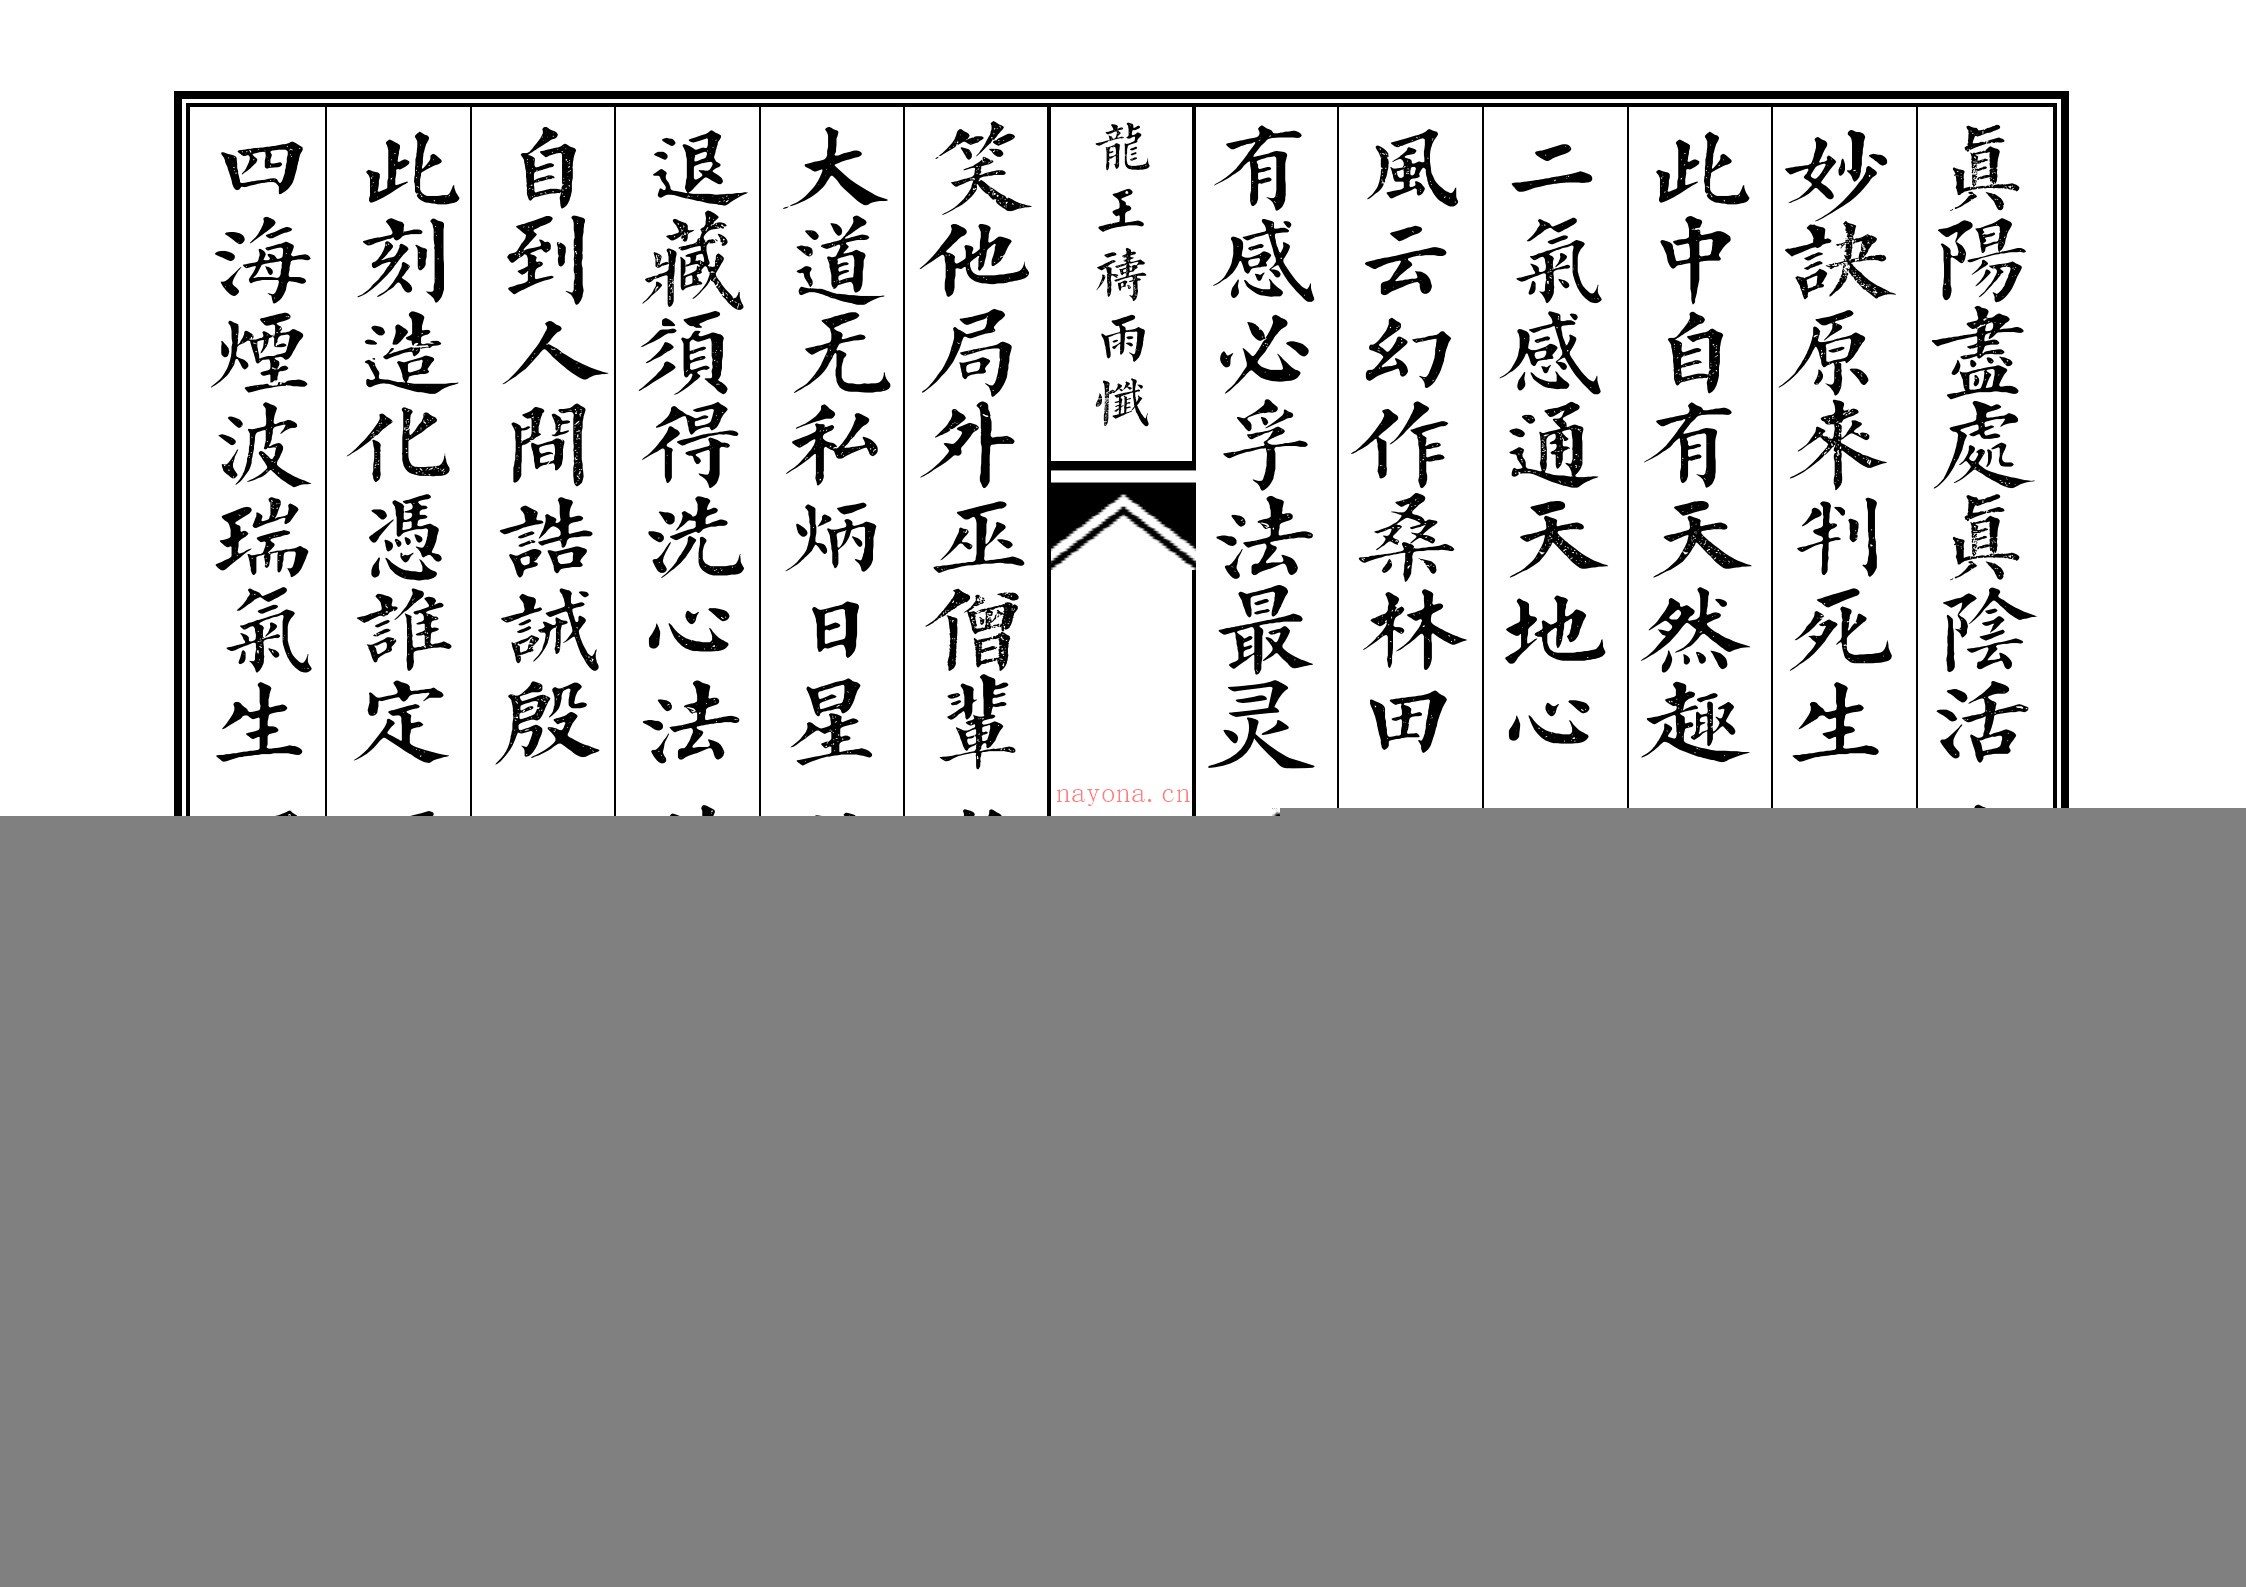 眞陽盡處眞陰活
妙訣原來判死生
此中自有天然趣
二氣感通天地心
風云幻作桑林田
有感必孚法最灵
龍王禱雨懺
nayona.cn
笑他局外巫僧輩
大道无私炳日星
退藏須得洗心法
自到人間誥誡殷
此刻造化憑誰定
四海煙波瑞氣生